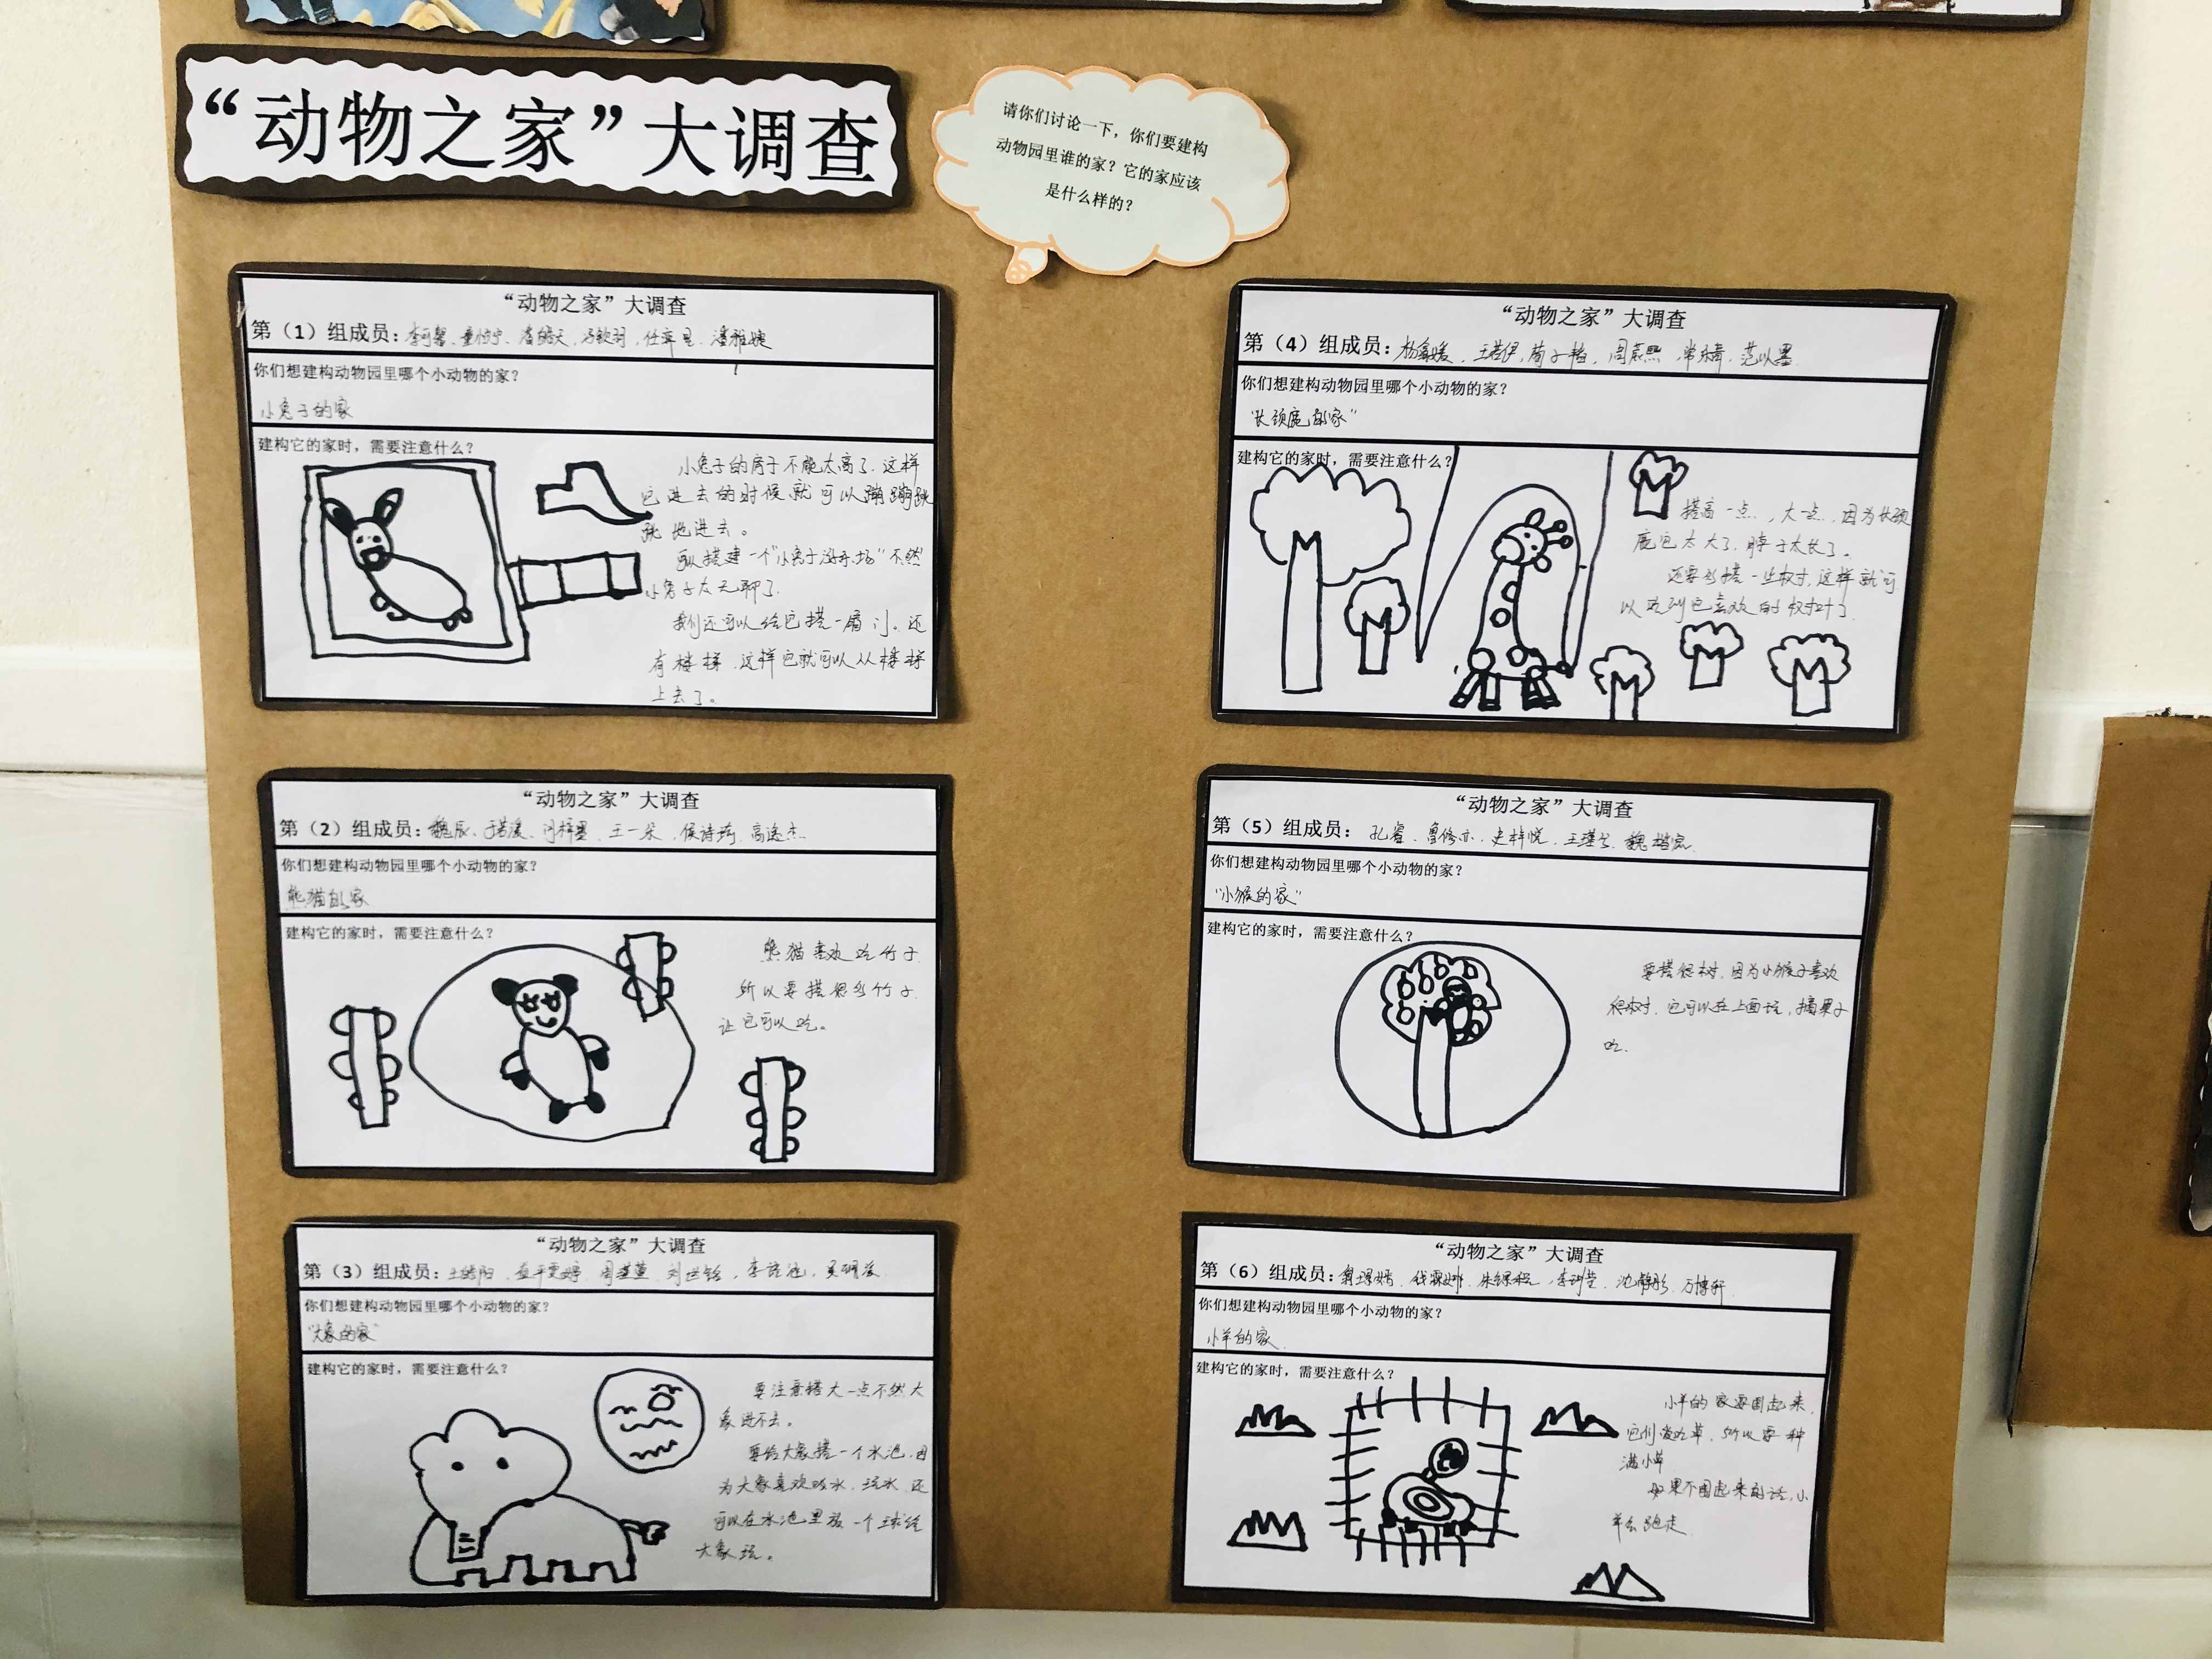 “动物之家”大调查
请你们讨论一下，你们要建构
动物园里谁的家？它的家应该
是什么样的？
“动物之家”大调查
第（1）组成员：
你们想建构动物园里哪个小动物的家？
小兔子的家
建构它的家时，需要注意什么？
小兔子的房子不能太高了，这样
它进去的时候就可以蹦蹦跳
跳地进去。
可以搭建一个“小兔子游乐场”不然
小兔子太无聊了。
我们还可以给它搭一扇门。还
有楼梯，这样它就可以从楼梯
上去了。
“动物之家”大调查
第（2）组成员：魏辰、王一朵、侯诗琦
你们想建构动物园里哪个小动物的家？
熊猫的家
建构它的家时，需要注意什么？
熊猫喜欢吃竹子
所以要搭很多竹子
让它可以吃。
“动物之家”大调查
第（3）组成员：
你们想建构动物园里哪个小动物的家？
“大象的家”
建构它的家时，需要注意什么？
要注意搭大一点不然大
象进不去。
要给大象搭一个水池，因
为大象喜欢吸水，玩水，还
可以在水池里放一个球给
大象玩。
“动物之家”大调查
第（4）组成员：
你们想建构动物园里哪个小动物的家？
“长颈鹿的家”
建构它的家时，需要注意什么？
搭高一点，大一点，因为长颈
鹿它太大了，脖子太长了。
还要多搭一些树，这样就可
以吃到它喜欢的树叶了。
“动物之家”大调查
第（5）组成员：孔睿、鲁修亦、史梓悦
你们想建构动物园里哪个小动物的家？
“小猴的家”
建构它的家时，需要注意什么？
要搭很树，因为小猴子喜欢
爬树，它可以在上面玩，摘果子
吃。
“动物之家”大调查
第（6）组成员：
你们想建构动物园里哪个小动物的家？
小羊的家
建构它的家时，需要注意什么？
小羊的家要围起来，
它们爱吃草，所以要种
满小草
如果不围起来的话，小
羊会跑走